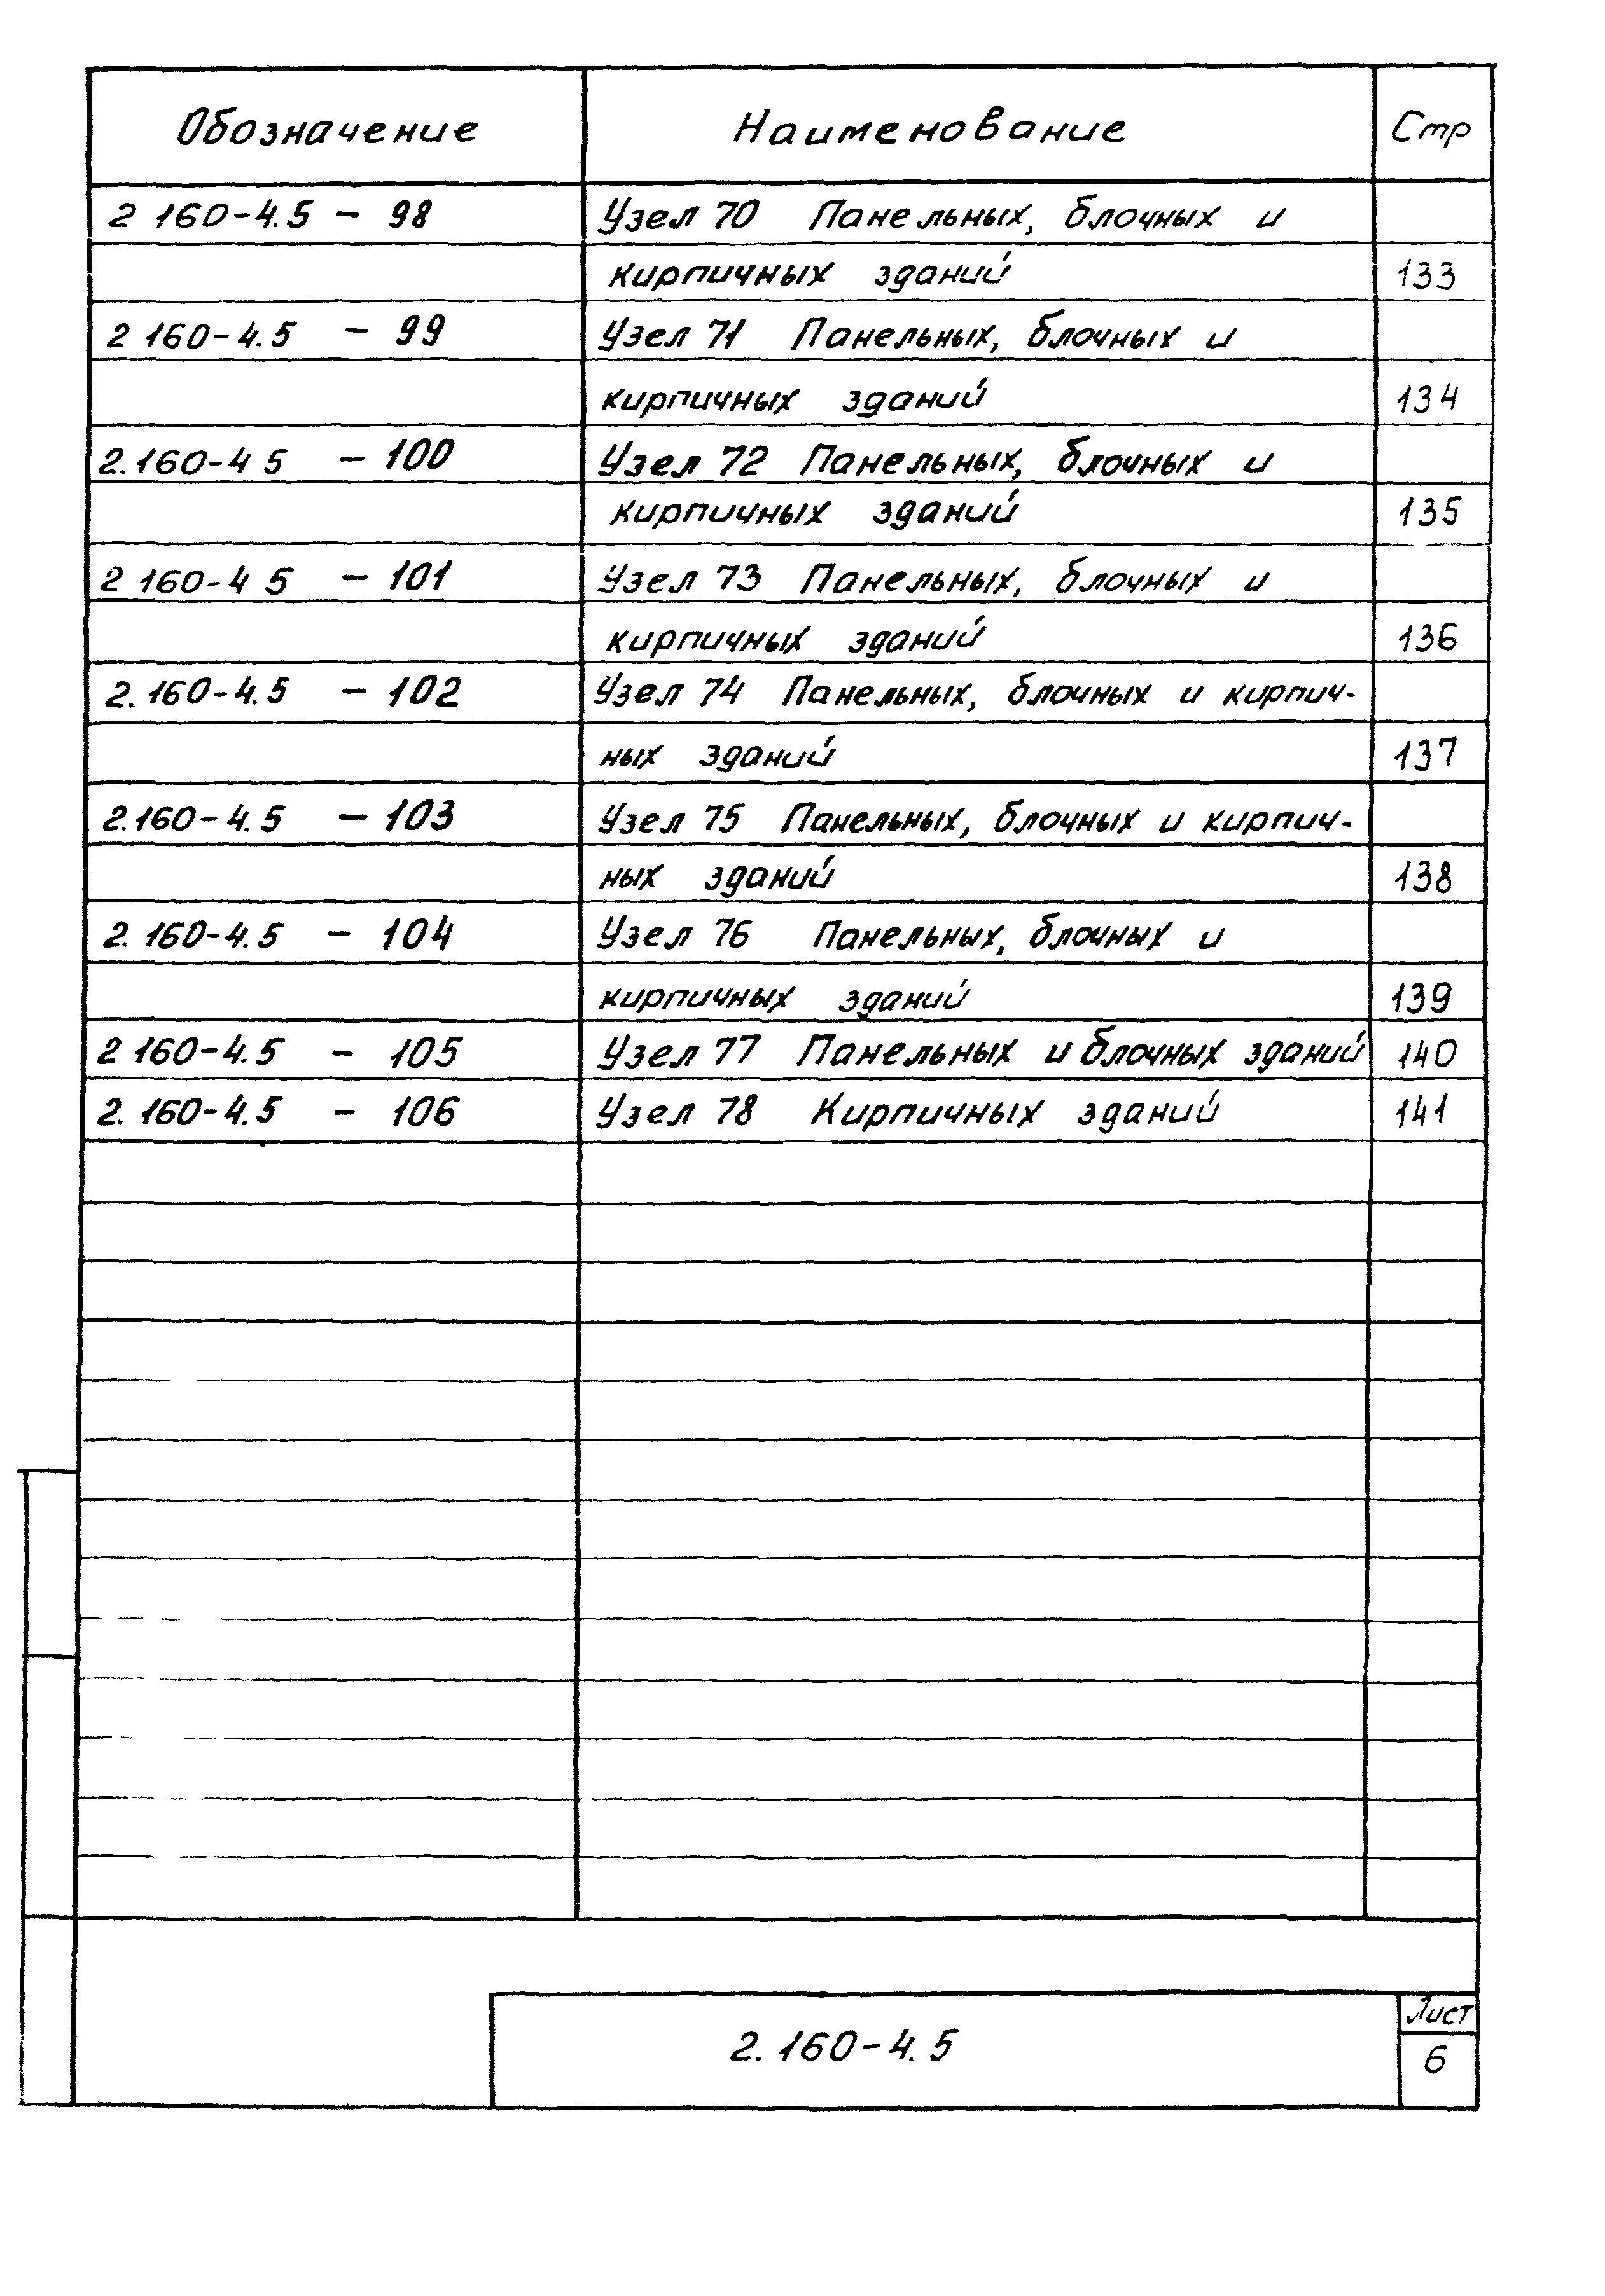 Обозначение Наименование Стр
2 160-4.5 - 98 Узел 70 Панельных, блочных и
кирпичных зданий 133
2 160-4.5 - 99 Узел 71 Панельных, блочных и
кирпичных зданий 134
2.160-4 5 - 100 Узел 72 Панельных, блочных и
кирпичных зданий 135
2 160-4 5 - 101 Узел 73 Панельных, блочных и
кирпичных зданий 136
2.160-4.5 - 102 Узел 74 Панельных, блочных и кирпич-
ных зданий 137
2.160-4.5 - 103 Узел 75 Панельных, блочных и кирпич-
ных зданий 138
2.160-4.5 - 104 Узел 76 Панельных, блочных и
кирпичных зданий 139
2 160-4.5 - 105 Узел 77 Панельных и блочных зданий 140
2.160-4.5 - 106 Узел 78 Кирпичных зданий 141
Лист
2.160-4.5 6